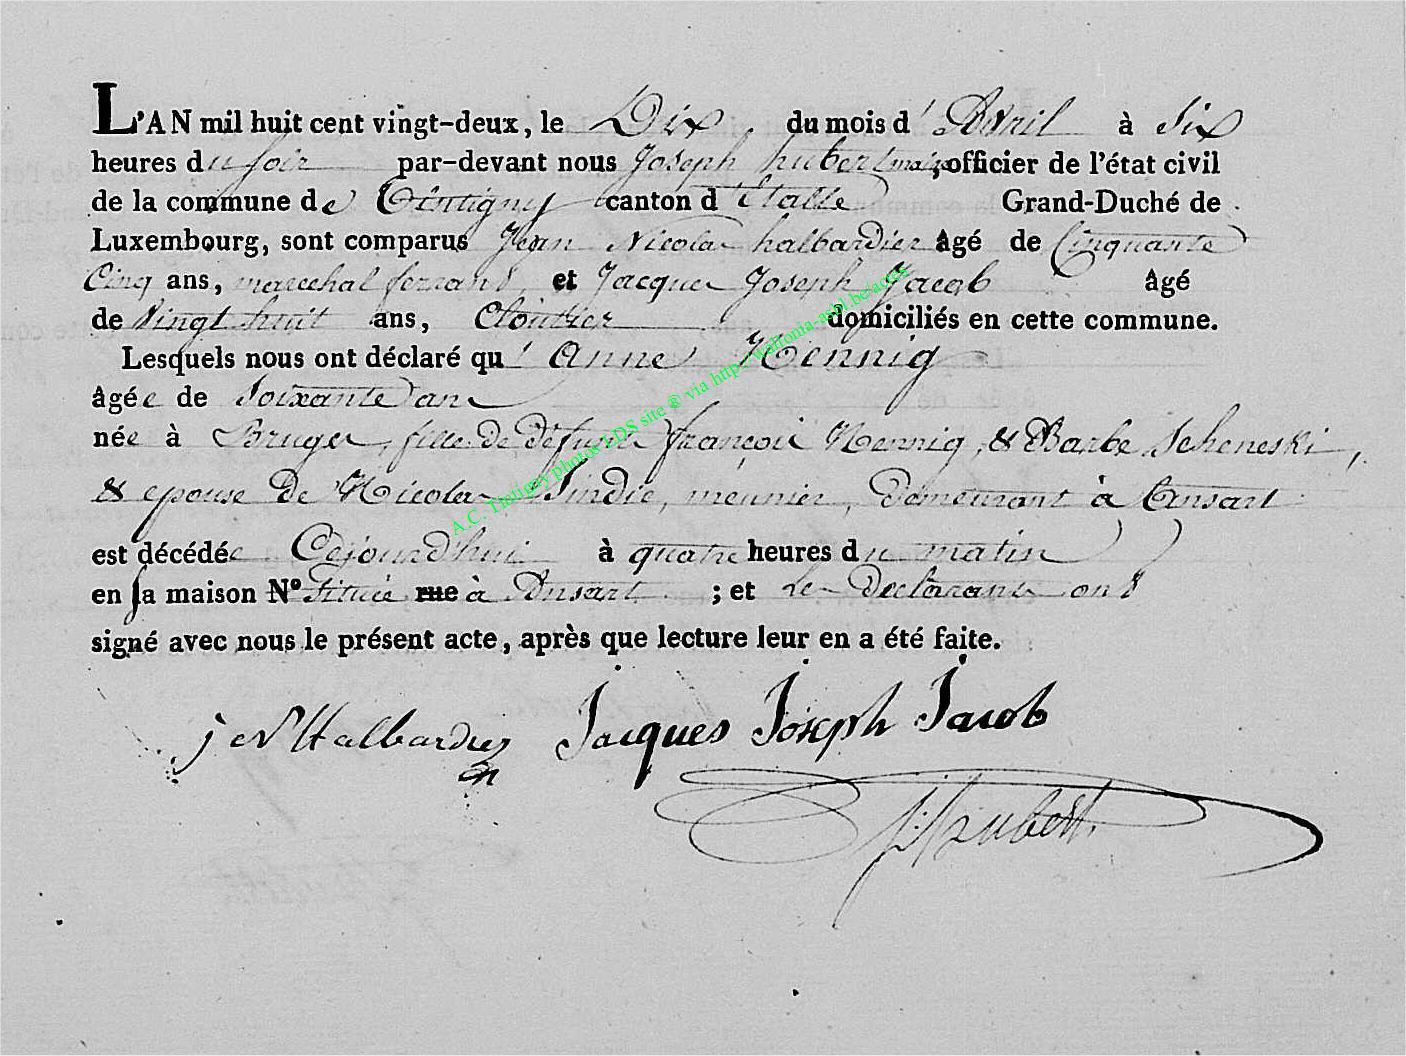 L'AN mil huit cent vingt-deux, le Dix du mois d'Avril à Six
heures du soir par-devant nous Joseph hubert maire officier de l'état civil
de la commune de Tintigny canton d'Etalle Grand-Duché de
Luxembourg, sont comparus Jean Nicolas halbardier âgé de Cinquante
Cinq ans, marechal ferrant, et Jacques Joseph Jacob âgé
de Vingt huit ans, Cloutier domiciliés en cette commune.
Lesquels nous ont déclaré qu'Anne Hennig
âgée de Soixante ans
née à Bruges, fille de défunts françois Hennig, & Barbe Scheneski,
& epouse de Nicolas Sindic, meunier, Demeurant à Ansart
est décédée Cejourd'hui à quatre heures du matin
en sa maison N° Située rue à Ansart ; et les Declarants ont
signé avec nous le présent acte, après que lecture leur en a été faite.
j N Halbardier Jacques Joseph Jacob
J: Hubert.
A.C. Tintigny photos LDS site ® via http://wallonia-asbl.be/actes